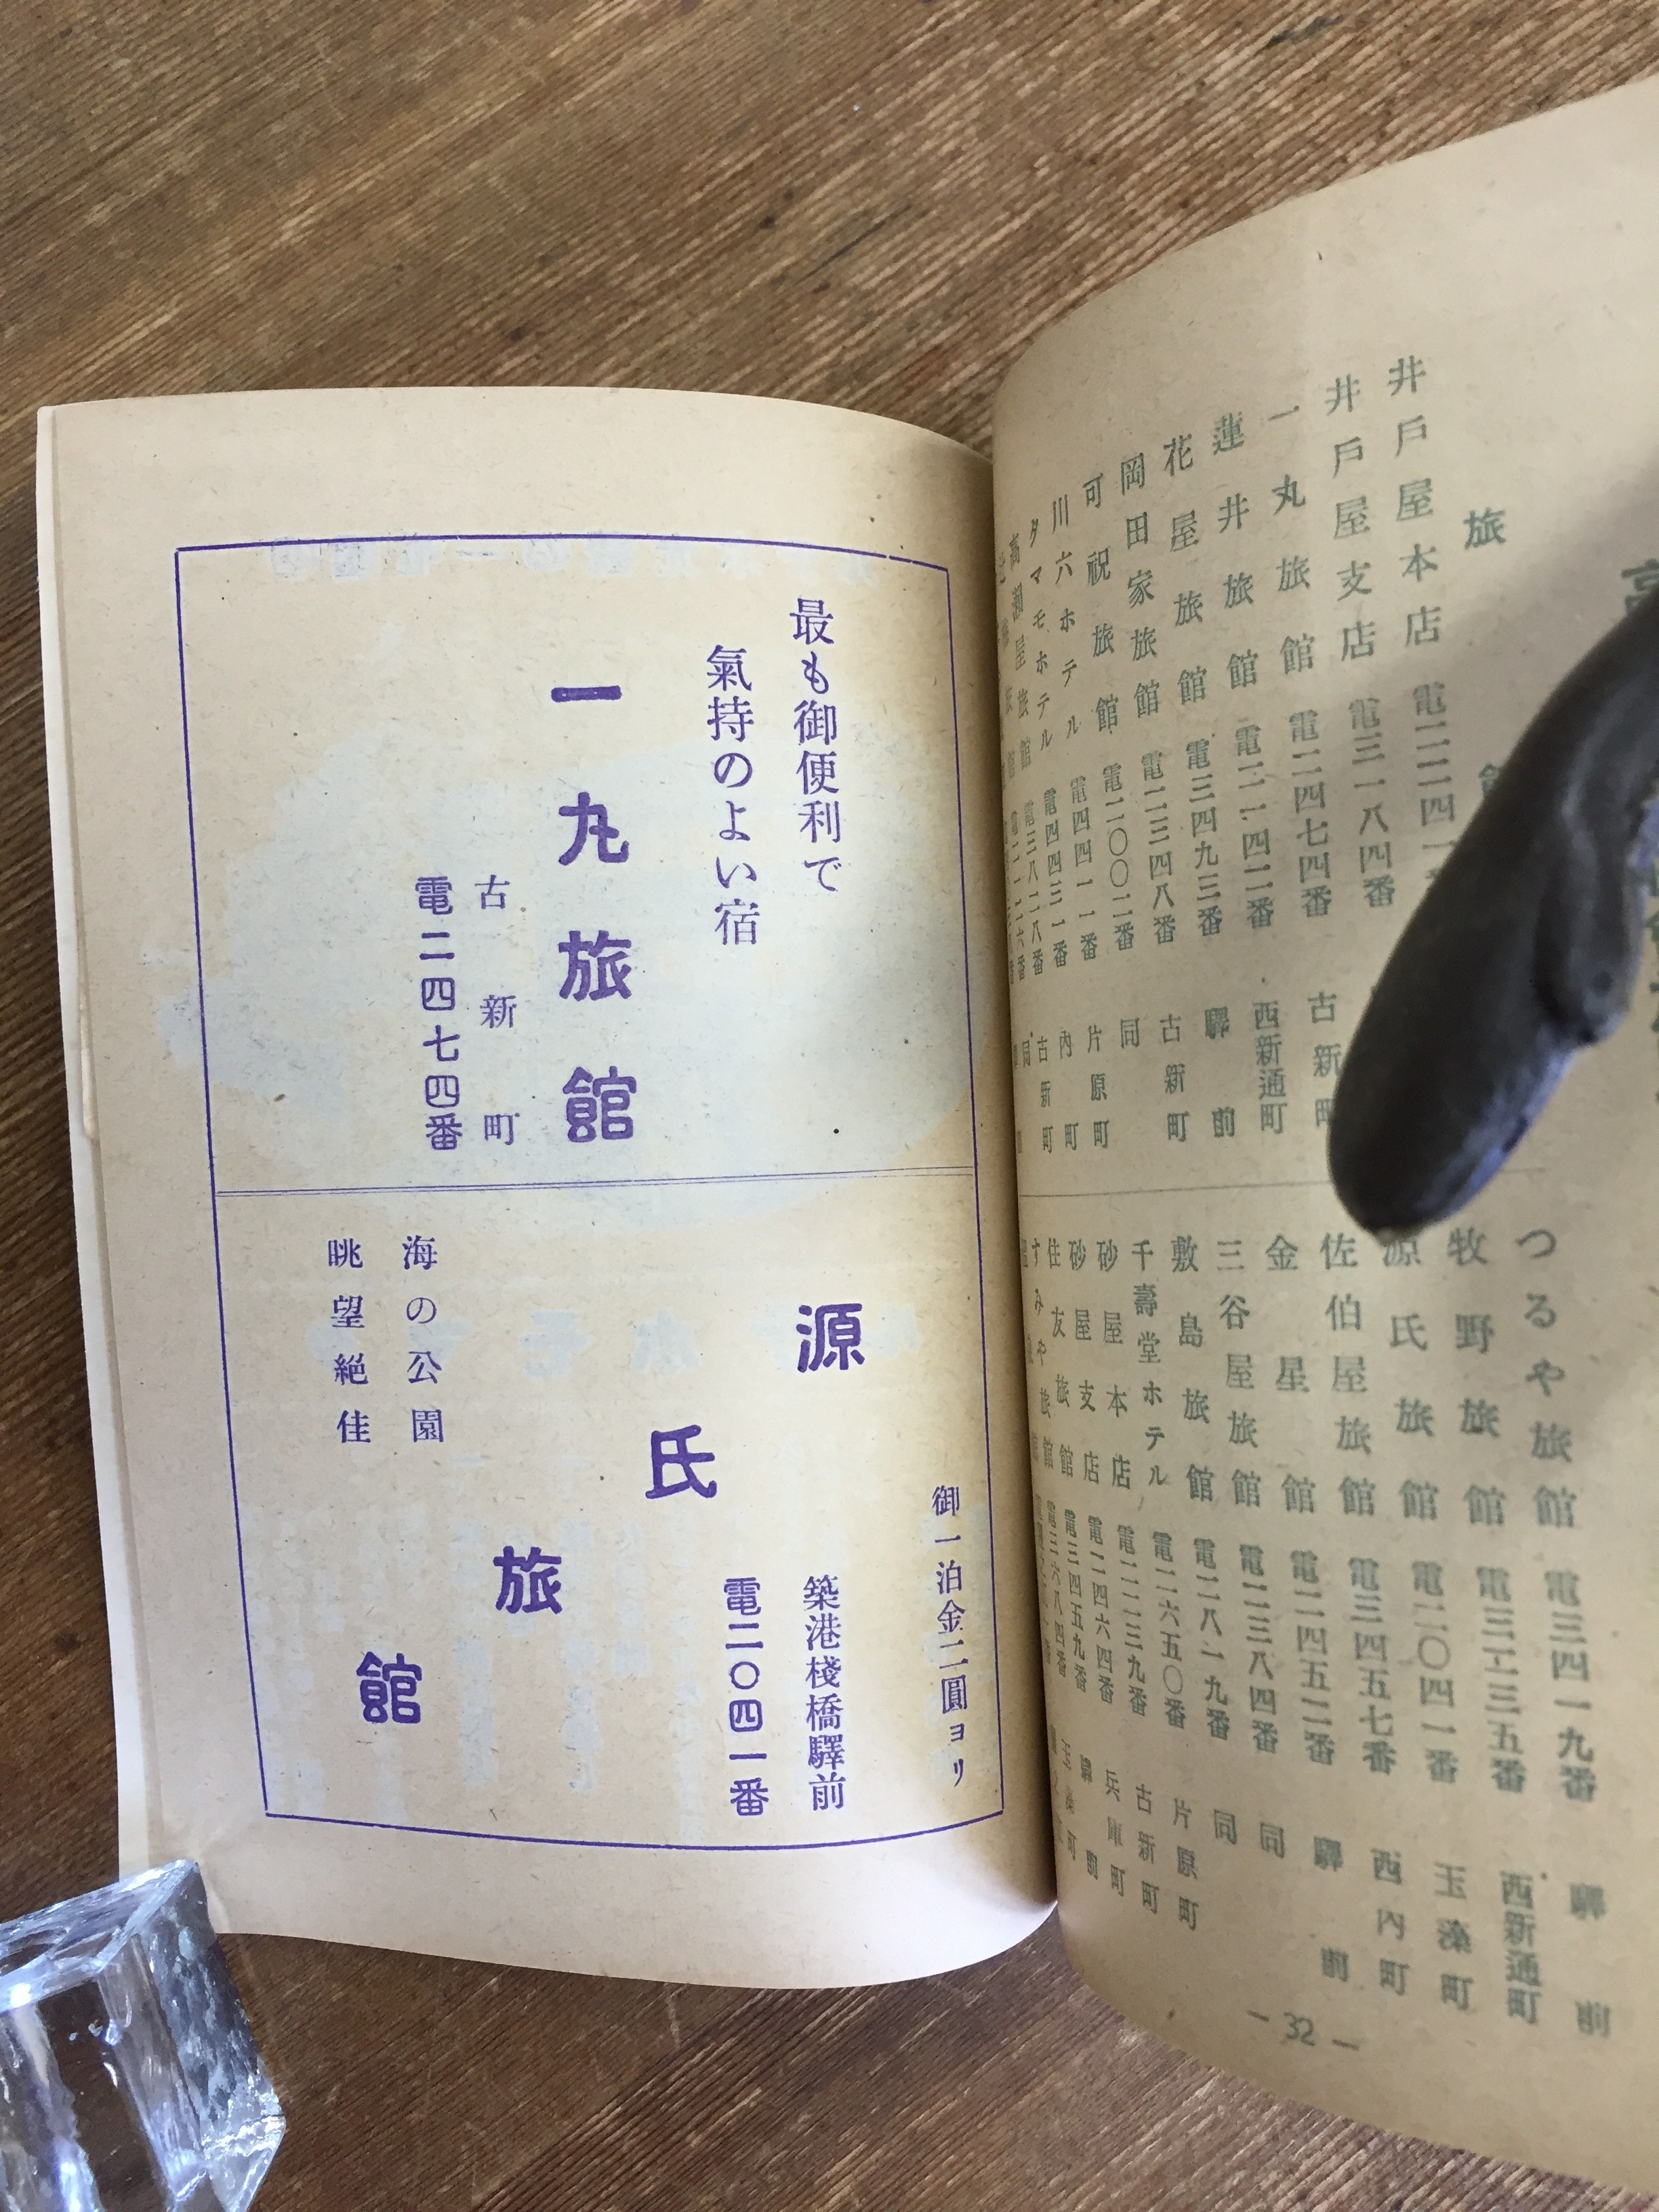 旅
井戸屋本店 電二二四一
井戸屋支店 電三一八四番
一丸旅館 電二四七四番 古新町
蓮井旅館 電二一四二番 西新通町
花屋旅館 電三四九三番 驛前
岡田家旅館 電二三四八番 古新町
可祝旅館 電二〇〇二番 同
川六ホテル 電四四一一番 片原町
タマモホテル 電四四三一番 内町
高瀬屋旅館 電三八二八番 古新町
つるや旅館 電三四一九番 驛前
牧野旅館 電三二三五番 西新通町
源氏旅館 電二〇四一番 玉藻町
佐伯屋旅館 電三四五七番 西内町
金星館 電二四五二番 驛前
三谷屋旅館 電二三八四番 同
敷島旅館 電二八一九番 同
千壽堂ホテル 電二六五〇番 片原町
砂屋本店 電二二三九番 古新町
砂屋支店 電二四六四番 兵庫町
住友旅館 電三四五九番 驛前
すみや旅館 電三六八四番 玉藻町
— 32 —
最も御便利で
氣持のよい宿
一丸旅館
古新町
電二四七四番
御一泊金二圓ヨリ
築港棧橋驛前
電二〇四一番
源氏旅館
海の公園
眺望絶佳